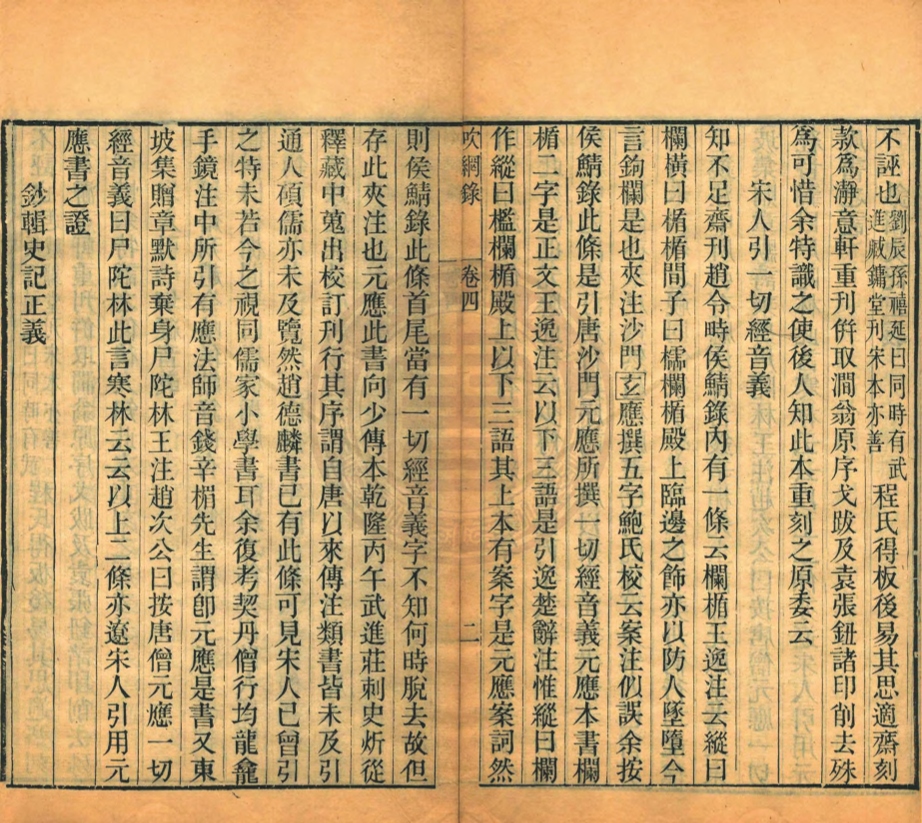 不誣也劉辰孫禧延曰同時有武進臧鏞堂刊宋本亦善程氏得板後易其思適齋刻
款爲瀞意軒重刊併取澗翁原序戈跋及袁張鈕諸印削去殊
爲可惜余特識之使後人知此本重刻之原委云
宋人引一切經音義
知不足齋刊趙令時侯鯖錄內有一條云欄楯王逸注云縱曰
欄橫曰楯楯間子曰櫺欄楯殿上臨邊之飾亦以防人墜墮今
言鉤欄是也夾注沙門玄應撰五字鮑氏校云案注似誤余按
侯鯖錄此條是引唐沙門元應所撰一切經音義元應本書欄
楯二字是正文王逸注云以下三語是引逸楚辭注惟縱曰欄
作縱曰檻欄楯殿上以下三語其上本有案字是元應案詞然
吹網錄
卷四
二
則侯鯖錄此條首尾當有一切經音義字不知何時脫去故但
存此夾注也元應此書向少傳本乾隆丙午武進莊刺史炘從
釋藏中蒐出校訂刊行其序謂自唐以來傳注類書皆未及引
通人碩儒亦未及覽然趙德麟書已有此條可見宋人已曾引
之特未若今之視同儒家小學書耳余復考契丹僧行均龍龕
手鏡注中所引有應法師音錢辛楣先生謂卽元應是書又東
坡集贈章默詩棄身尸陀林王注趙次公曰按唐僧元應一切
經音義曰尸陀林此言寒林云云以上二條亦遼宋人引用元
應書之證
鈔輯史記正義